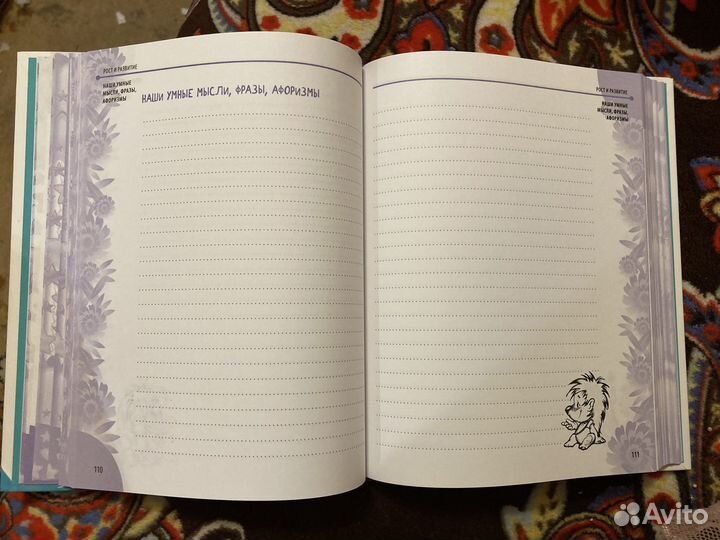 РОСТ И РАЗВИТИЕ
НАШИ УМНЫЕ
МЫСЛИ, ФРАЗЫ,
АФОРИЗМЫ
НАШИ УМНЫЕ МЫСЛИ, ФРАЗЫ, АФОРИЗМЫ
110
РОСТ И РАЗВИТИЕ
НАШИ УМНЫЕ
МЫСЛИ, ФРАЗЫ,
АФОРИЗМЫ
111
Avito